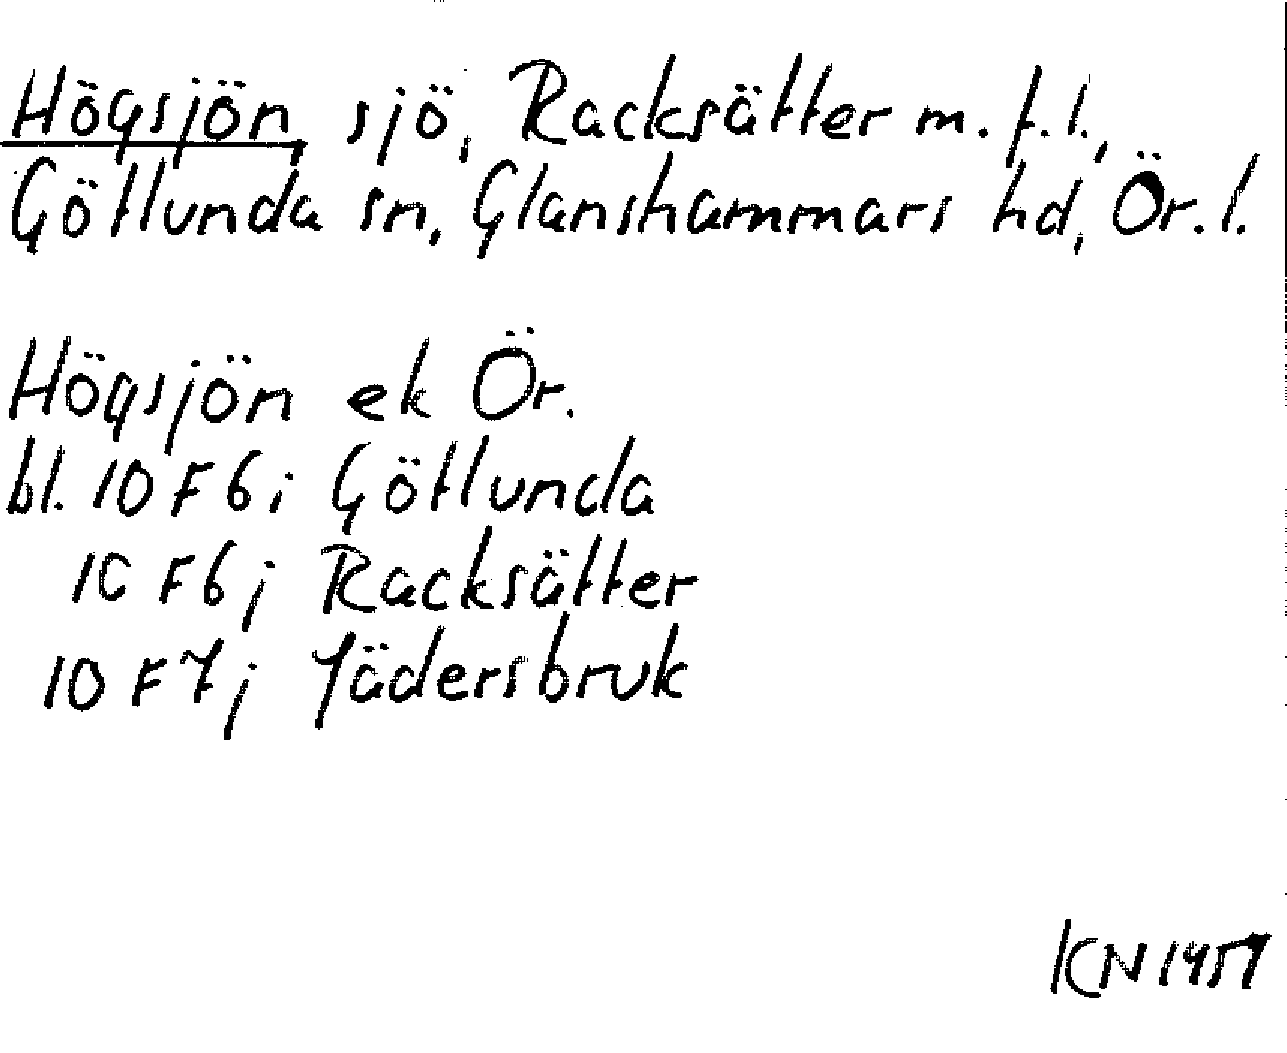 Högsjön, sjö, Racksätter m. fl.,
Götlunda sn, Glanshammars hd, Ör. l.
Högsjön ek Ör.
bl. 10 F 6 i Götlunda
10 F 6 j Racksätter
10 F 7 j Jädersbruk
KN